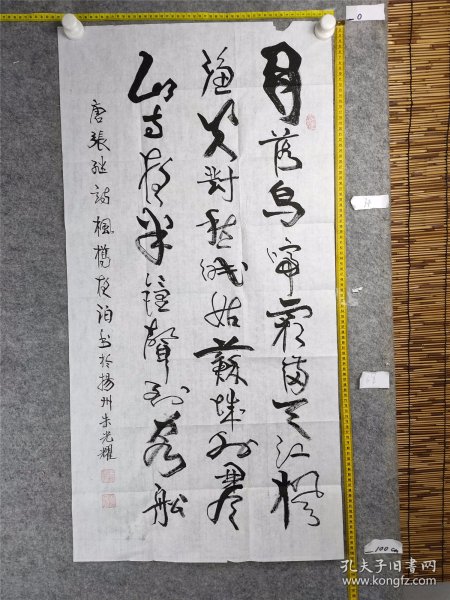 月落烏啼霜滿天江楓
漁火對愁眠姑蘇城外寒
山寺夜半鐘聲到客船
唐張继詩楓橋夜泊書於揚州朱光耀
0
100cm
孔夫子旧書网
www.kongfz.com